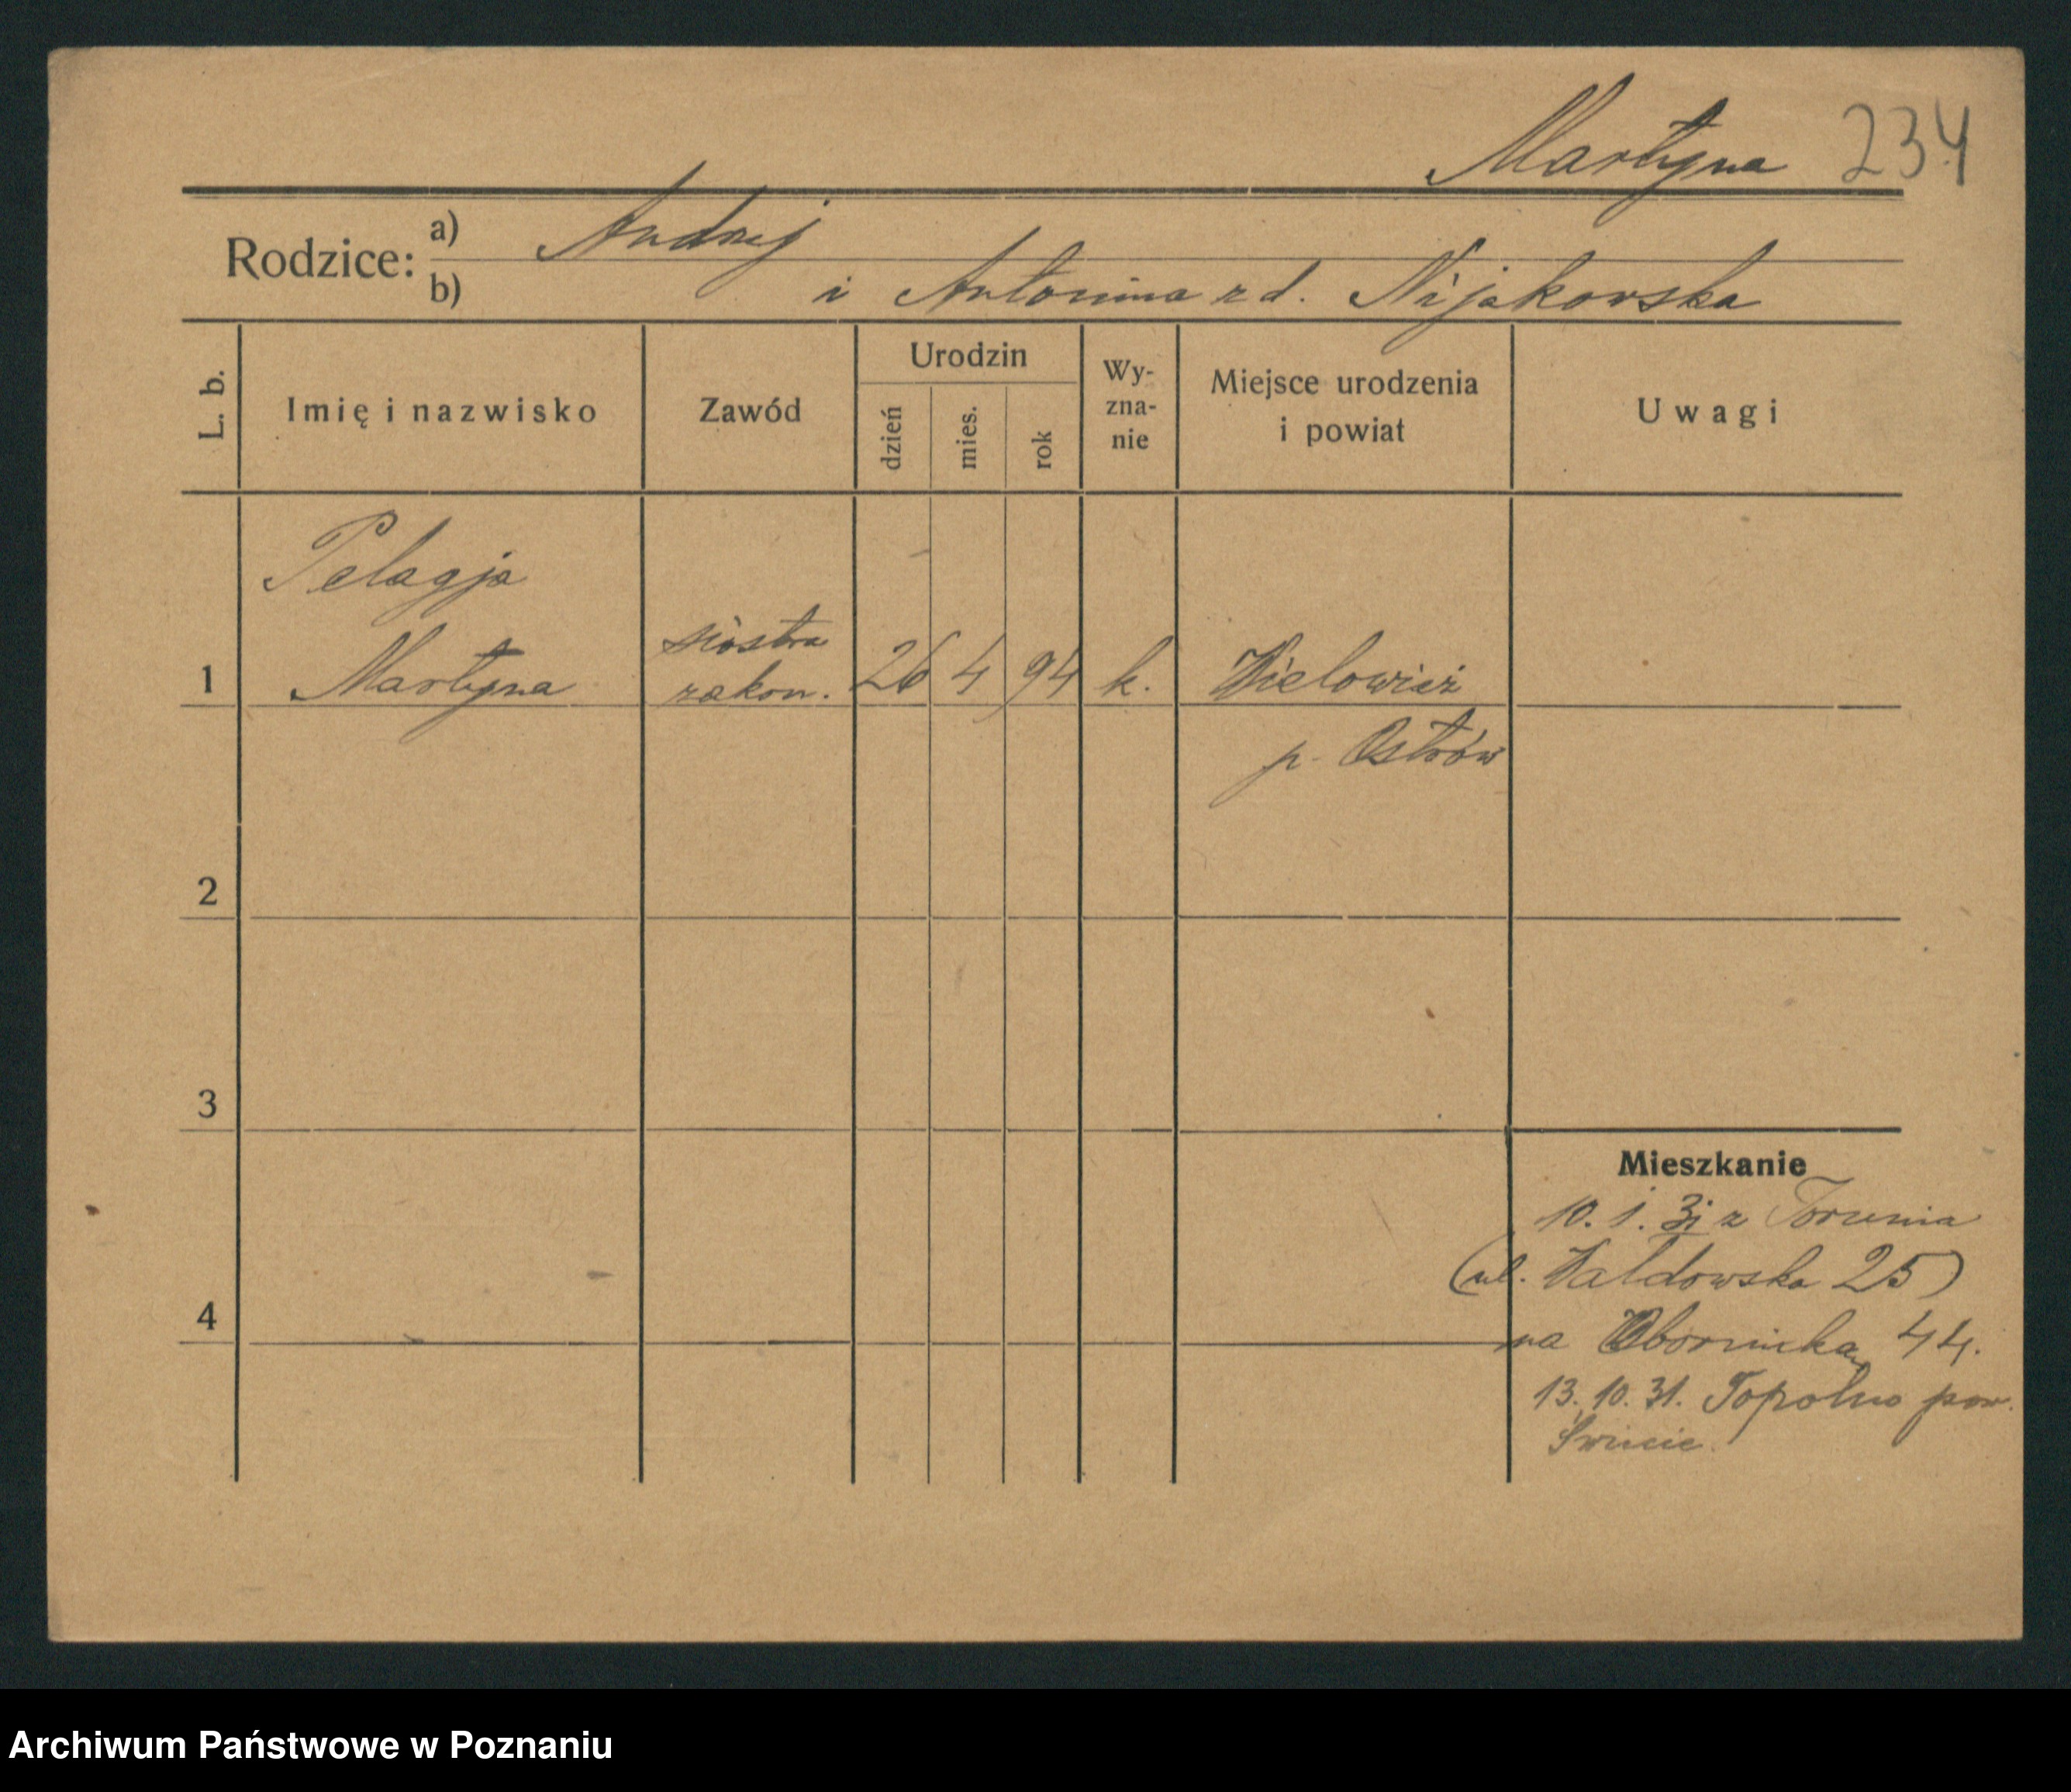 Martyna 234
Rodzice: a) Andrzej
b) i Antonina z d. Nijakowska
L. b. Imię i nazwisko Zawód Urodzin dzień mies. rok Wy-zna-nie Miejsce urodzenia i powiat Uwagi
Pelagja
siostra
1 Martyna zakon. 26 4 94 k. Wielowieś
p. Ostrów
2
3
Mieszkanie
10. 1. 31 z Torunia
(ul. Wałdowska 25)
4
na Obornicka 44.
13. 10. 31. Topolno pow.
Świecie.
Archiwum Państwowe w Poznaniu